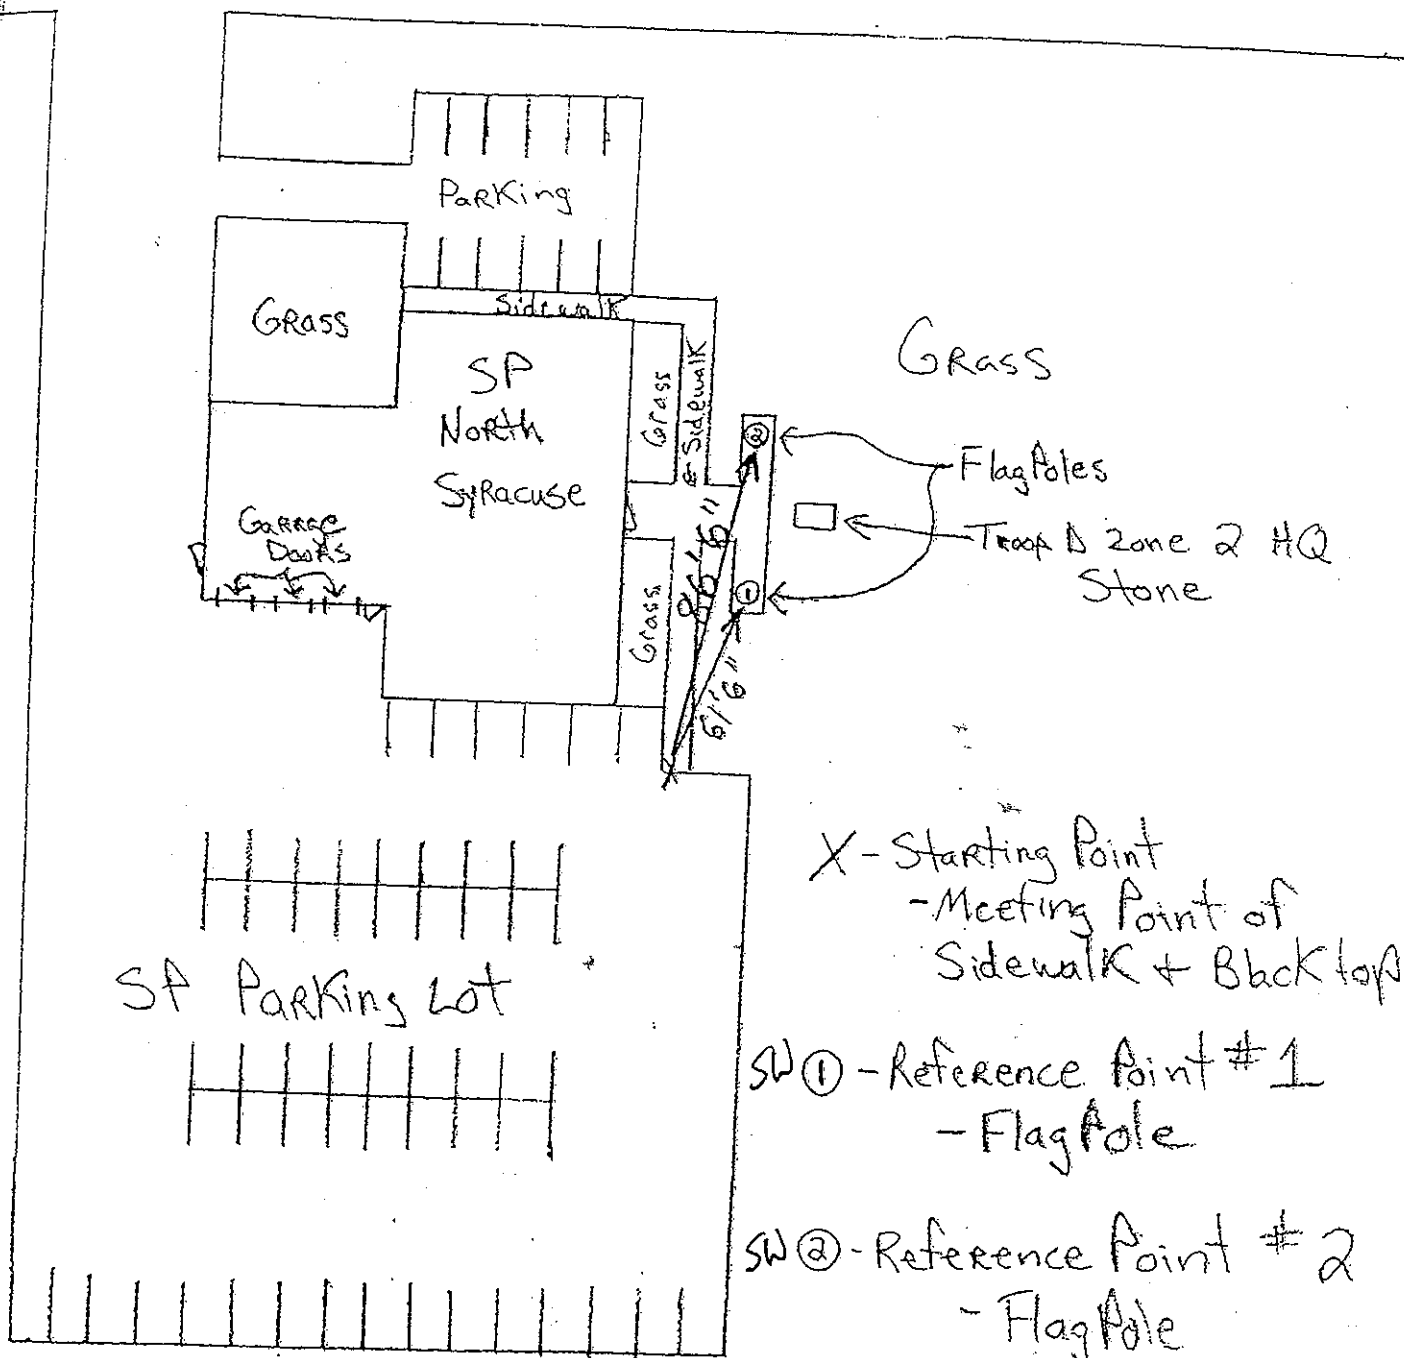 Parking
Sidewalk
Grass
SP
North
Syracuse
Grass
Sidewalk
Garage
Doors
Grass
2
1
86'6"
61'6"
Grass
FlagPoles
Troop D Zone 2 HQ
Stone
X - Starting Point
- Meeting Point of
Sidewalk + Blacktop
SP Parking Lot
SW ① - Reference Point #1
- FlagPole
SW ② - Reference Point #2
- FlagPole